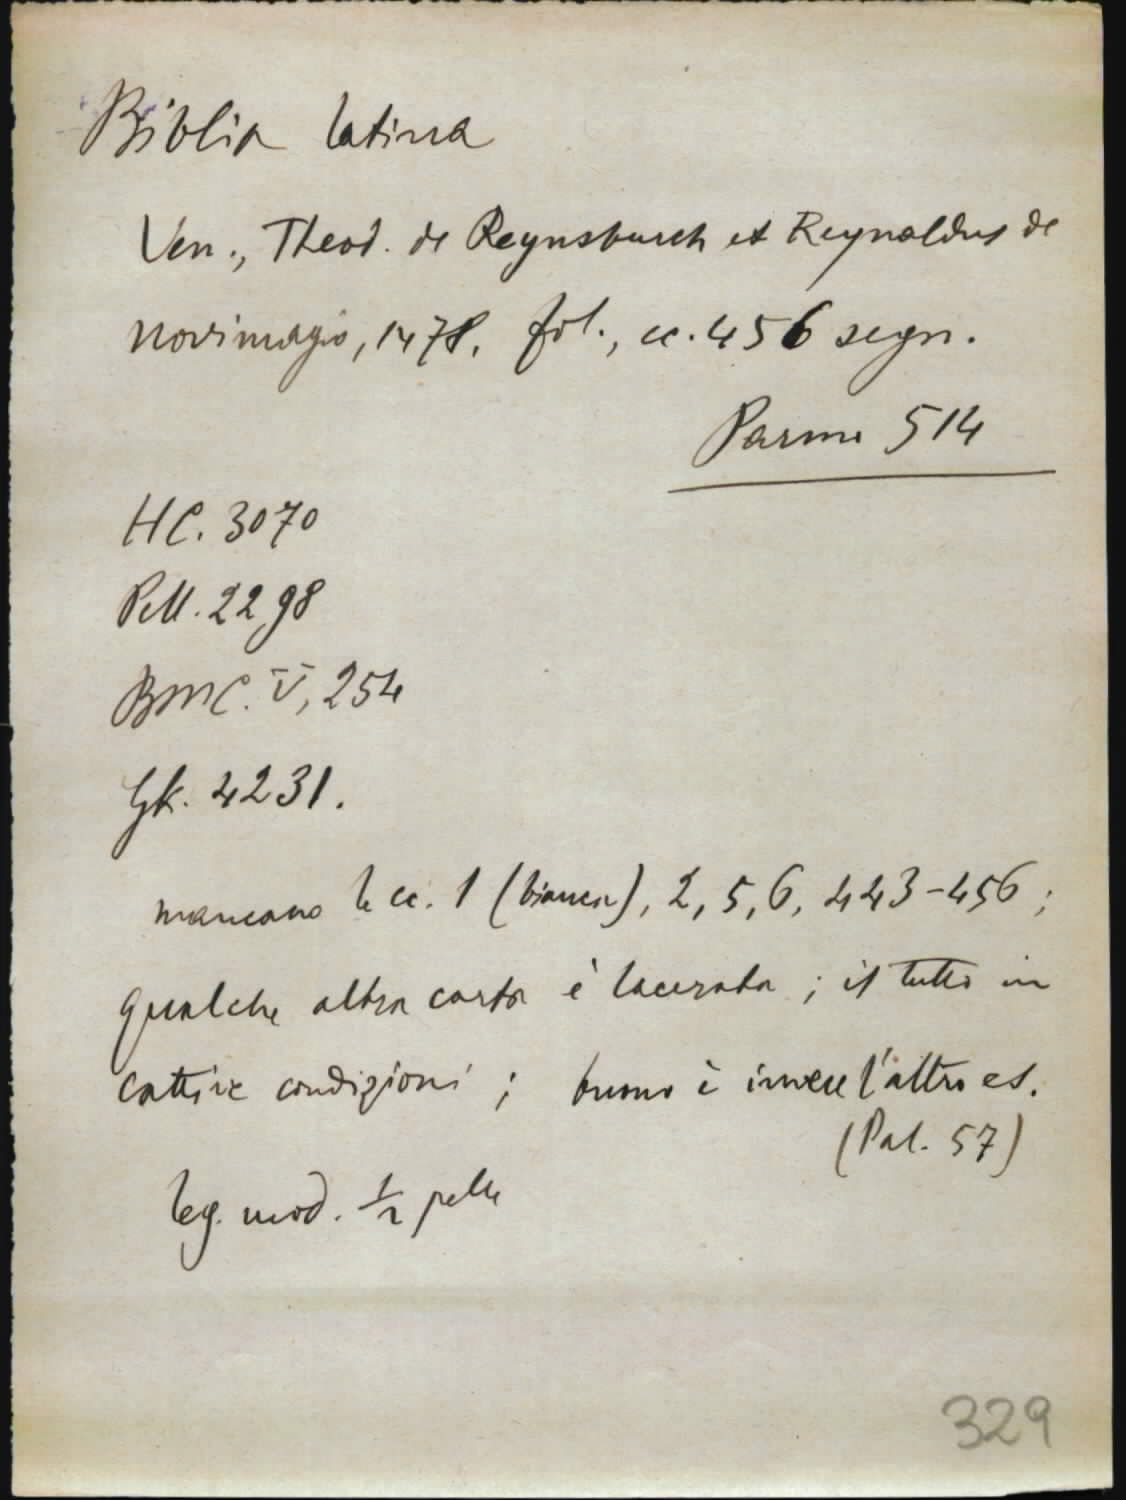 Biblia latina
Ven., Theod. de Reynsburch et Reynaldus de
Novimagio, 1478. fol., cc. 456 segn.
Parma 514
HC. 3070
Pell. 2298
BMC. V, 254
Gk. 4231.
mancano le cc. 1 (bianca), 2, 5, 6, 443-456;
qualche altra carta è lacerata; il tutto in
cattive condizioni; buono è invece l'altro es.
(Pal. 57)
leg. mod. 1/2 pelle
329